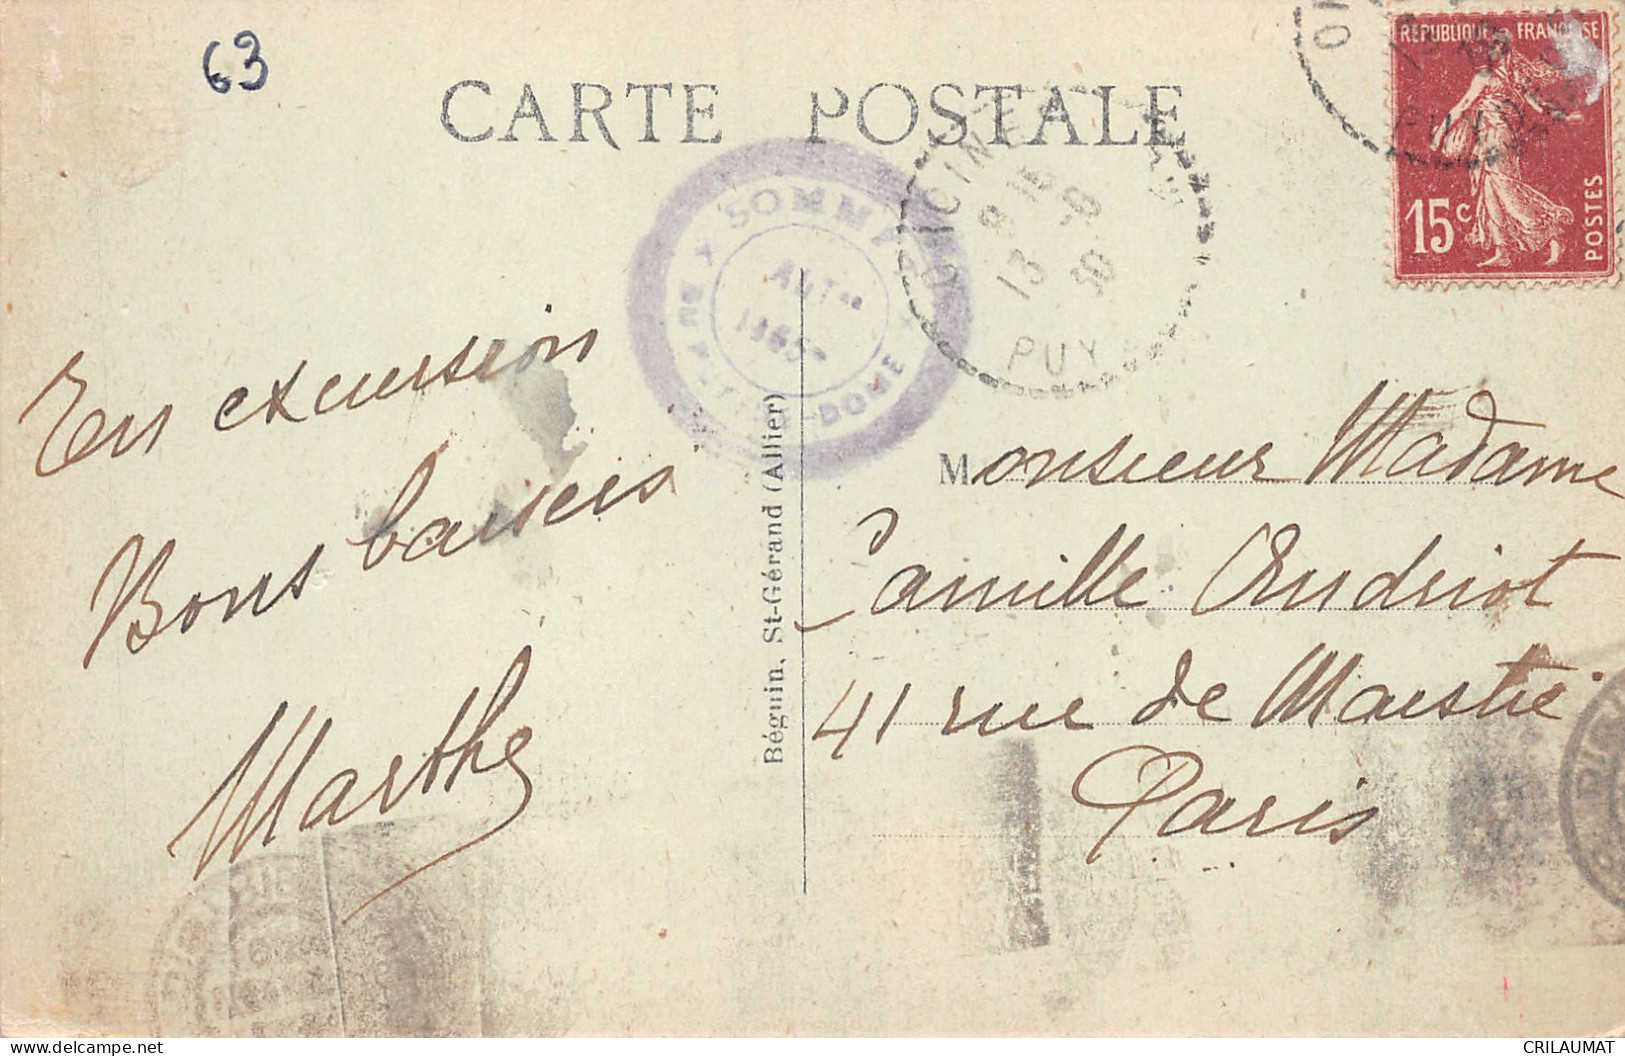 63
CARTE POSTALE
RÉPUBLIQUE FRANÇAISE
15c
POSTES
PUY
SOMMET DU PUY-DE-DOME
ALT
1465
13 -8
30
PUY
En excursion
Bons baisers
Marthe
Béguin, St-Gérand (Allier)
Monsieur Madame
Camille Andriot
41 rue de
Paris
CRILAUMAT